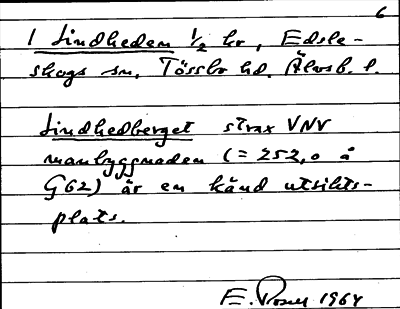 6
1 Lindheden 1/2 hr, Edsle-
skogs sn. Tössbo hd. Älvsb. l.
Lindhedberget strax VNV
manbyggnaden (= 252,0 å
G62) är en känd utsikts-
plats.
E. 1964